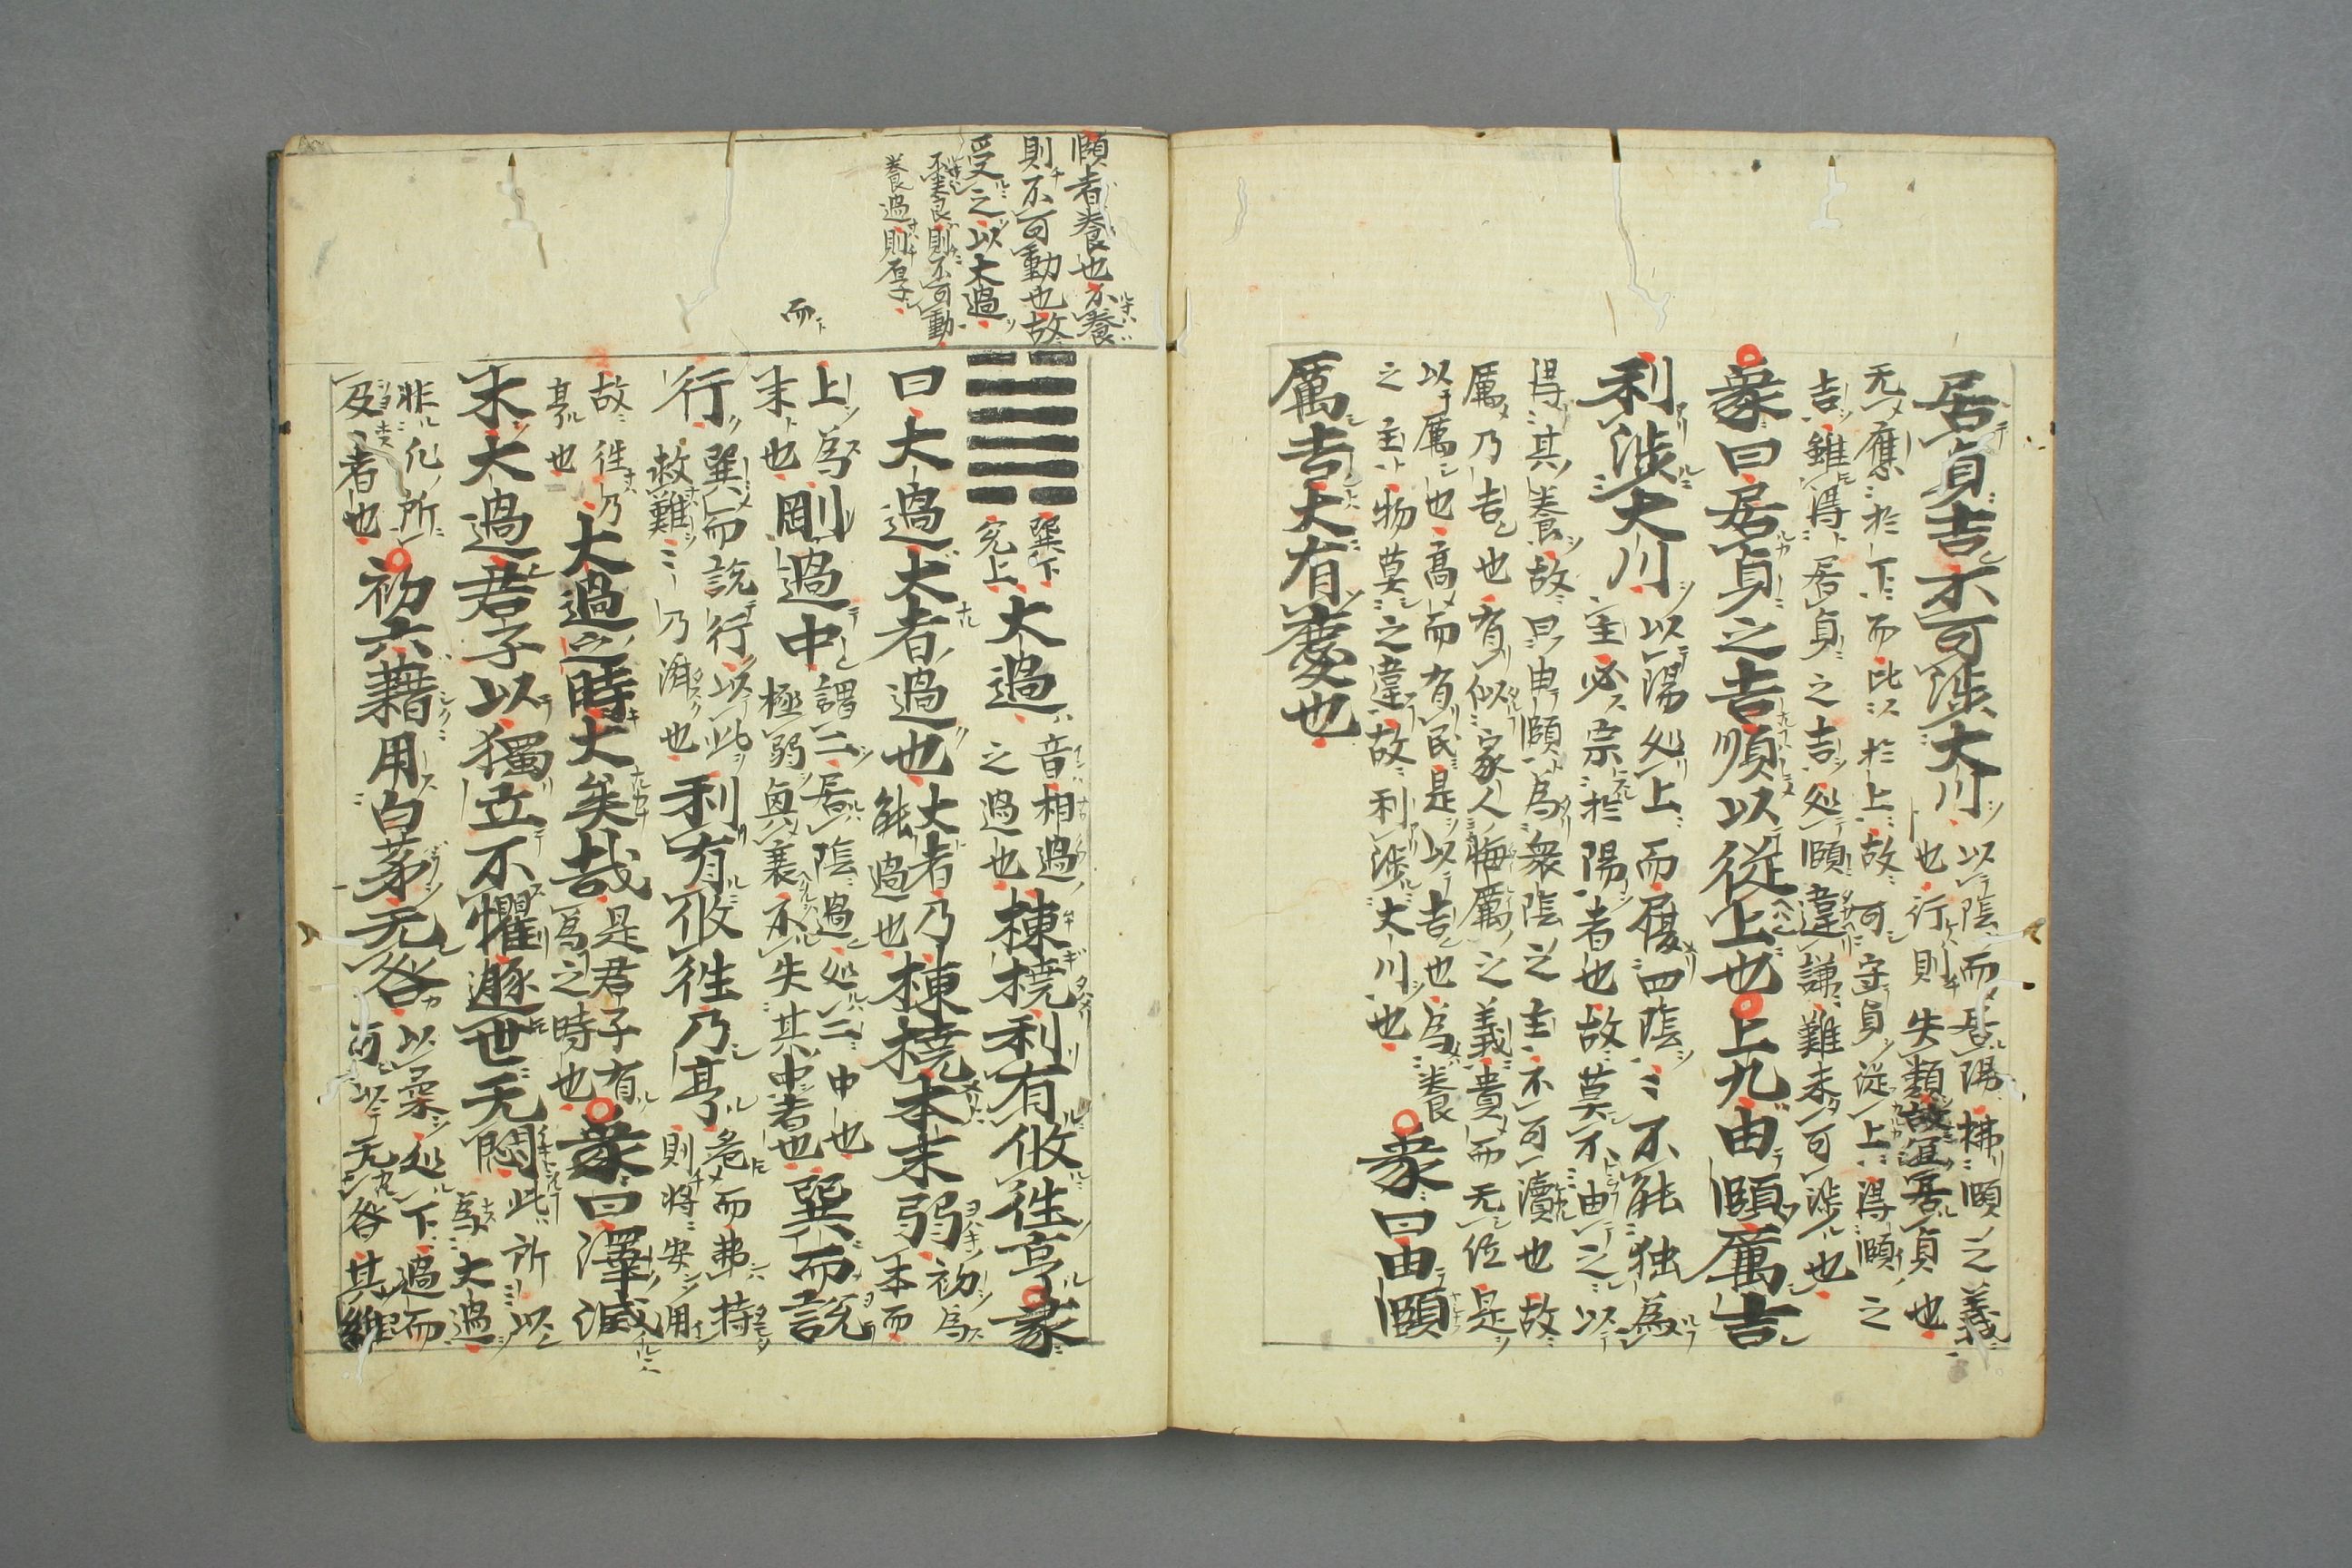 居貞吉不可渉大川
以陰而居陽拂頤之義
也行則失類故宜居貞也
无應於下而比於上故可守貞從上得頤之
吉雖得居貞之吉処頤違謙難未可渉也
象曰居貞之吉順以従上也上九由頤厲吉
利渉大川
以陽処上而履四陰〻不能独為
主必宗於陽者也故莫不由之以
得其養故曰由頤為衆陰之主不可瀆也故
厲乃吉也有似家人悔厲之義貴而无位是
以厲也高而有民是以吉也為養
之主物莫之違故利渉大川也
象曰由頤
厲吉大有慶也
頤者養也不養
則不可動也故
受之以大過
不養則不可動
養過則厚
而
巽下
兌上
大過
音相過
之過也
棟橈利有攸往亨彖
曰大過大者過也
大者乃
能過也
棟橈本末弱
初為
本而
上為
末也
剛過中
謂二居陰過処二中也
極弱興衰不失其中者也
巽而說
行
巽而說行以此
救難〻乃濟也
利有攸往乃亨
危而弗持
則将安用
故往乃
亨也
大過之時大矣哉
是君子有
為之時也
象曰澤滅
木大過君子以獨立不懼遯世无悶
此所以
為大過
非凡所
及者也
初六藉用白茅无咎
以柔処下過而
可以无咎其維